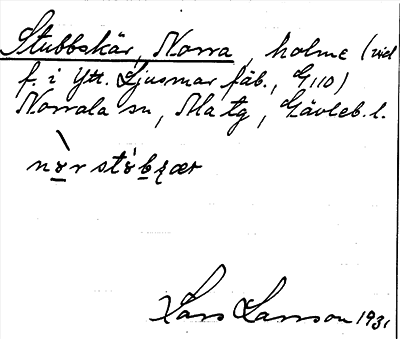 Stubbskär, Norra, holme (vid
f. i Ytt. Ljusmar fäb., G110)
Norrala sn, Ala tg, Gävleb. l.
Lars Larsson 1931